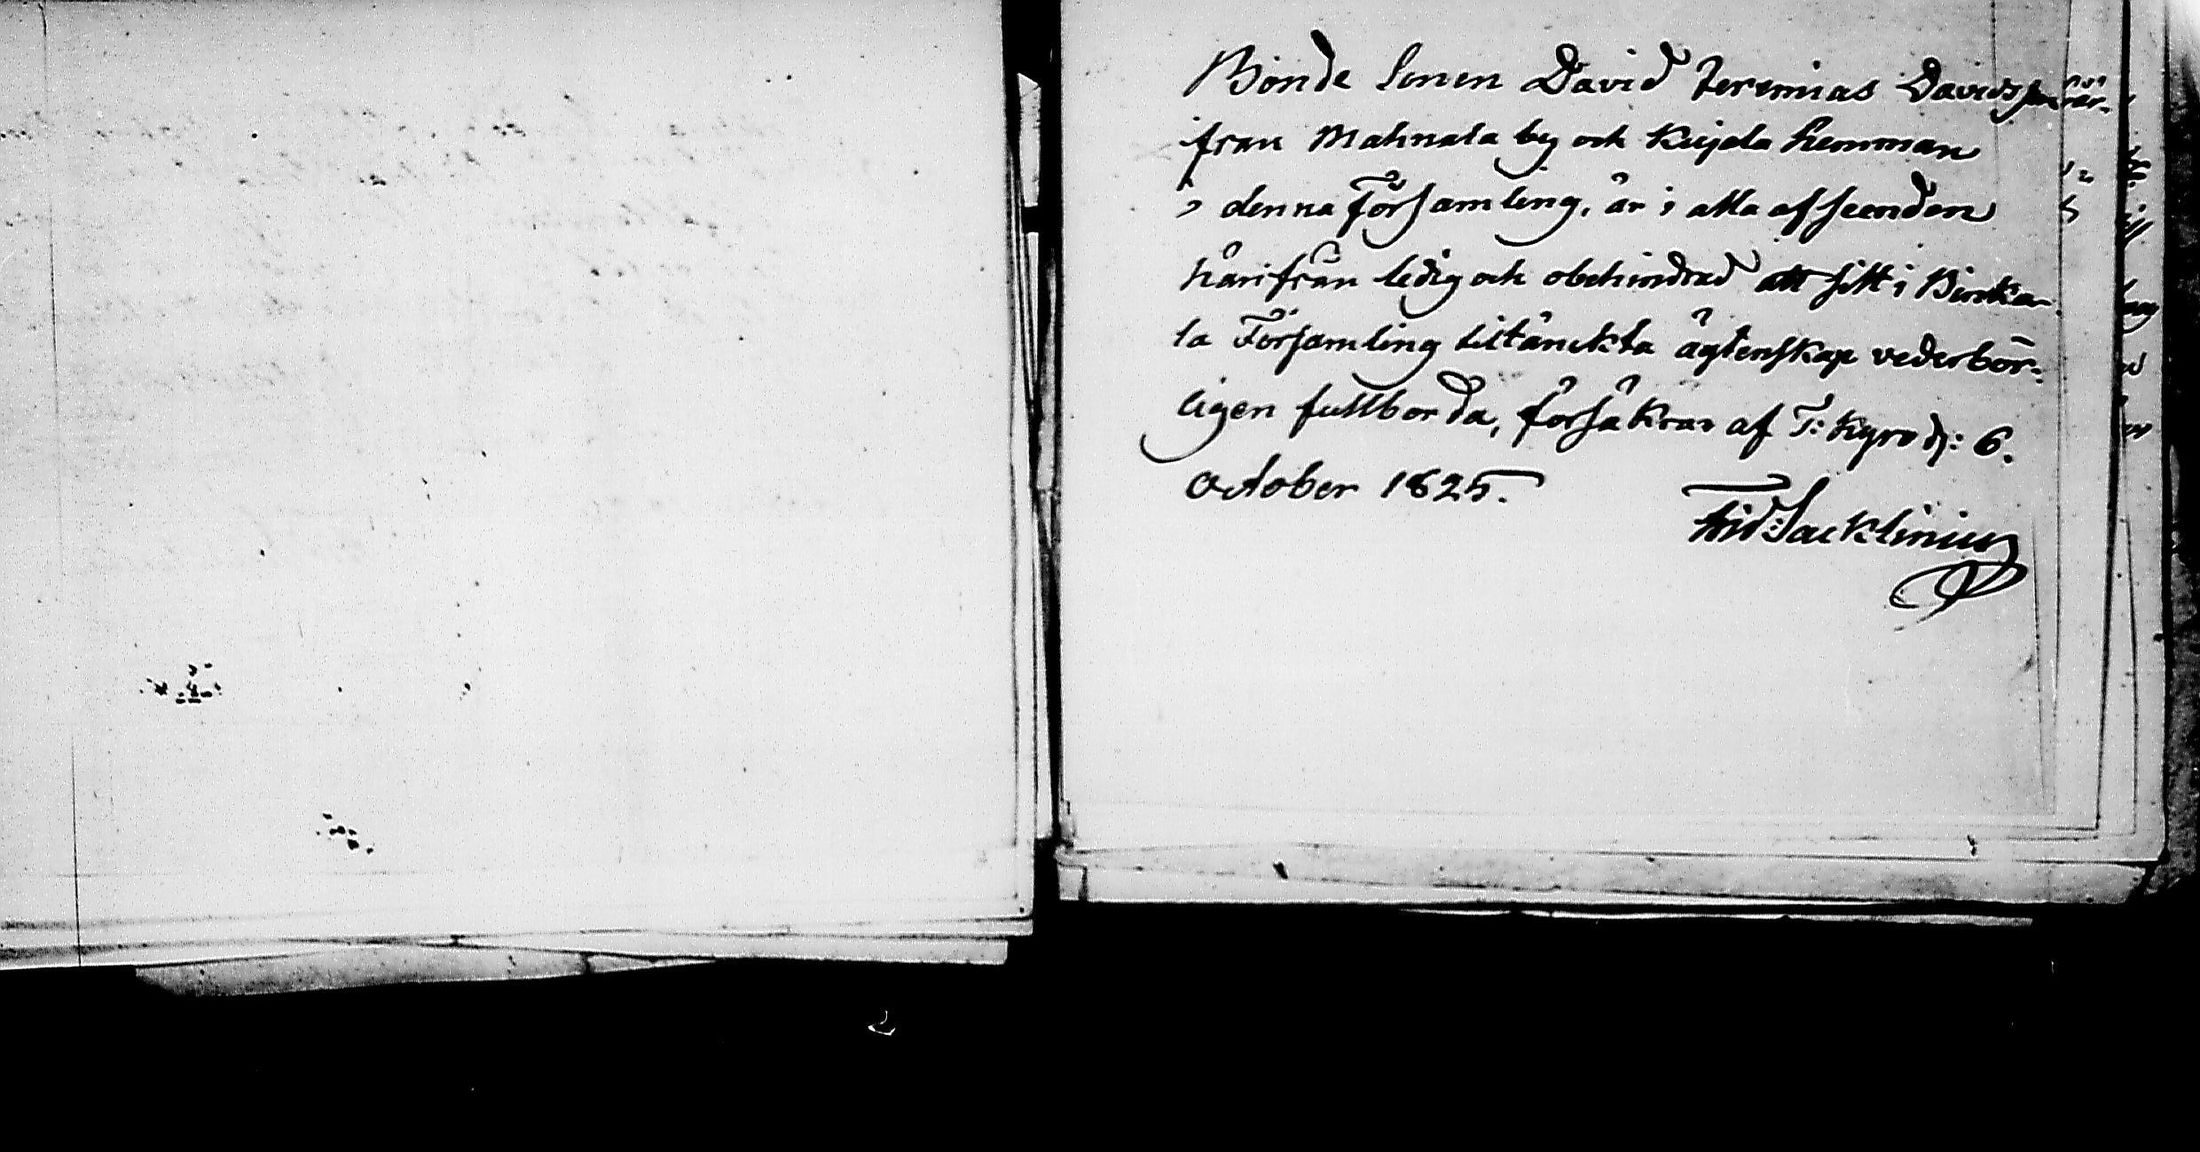 Bonde Sonen David Jeremias Davidsson
från Mahnala by och Kujala hemman
i denna Församling, är i alla afseenden
härifrån ledig och obehindrad att sitt i Birka-
la Församling tiltänckta ägtenskap vederbör-
ligen fullborda, försäkras af T: Kyro d: 6.
October 1825.
Frid: Sacklinius